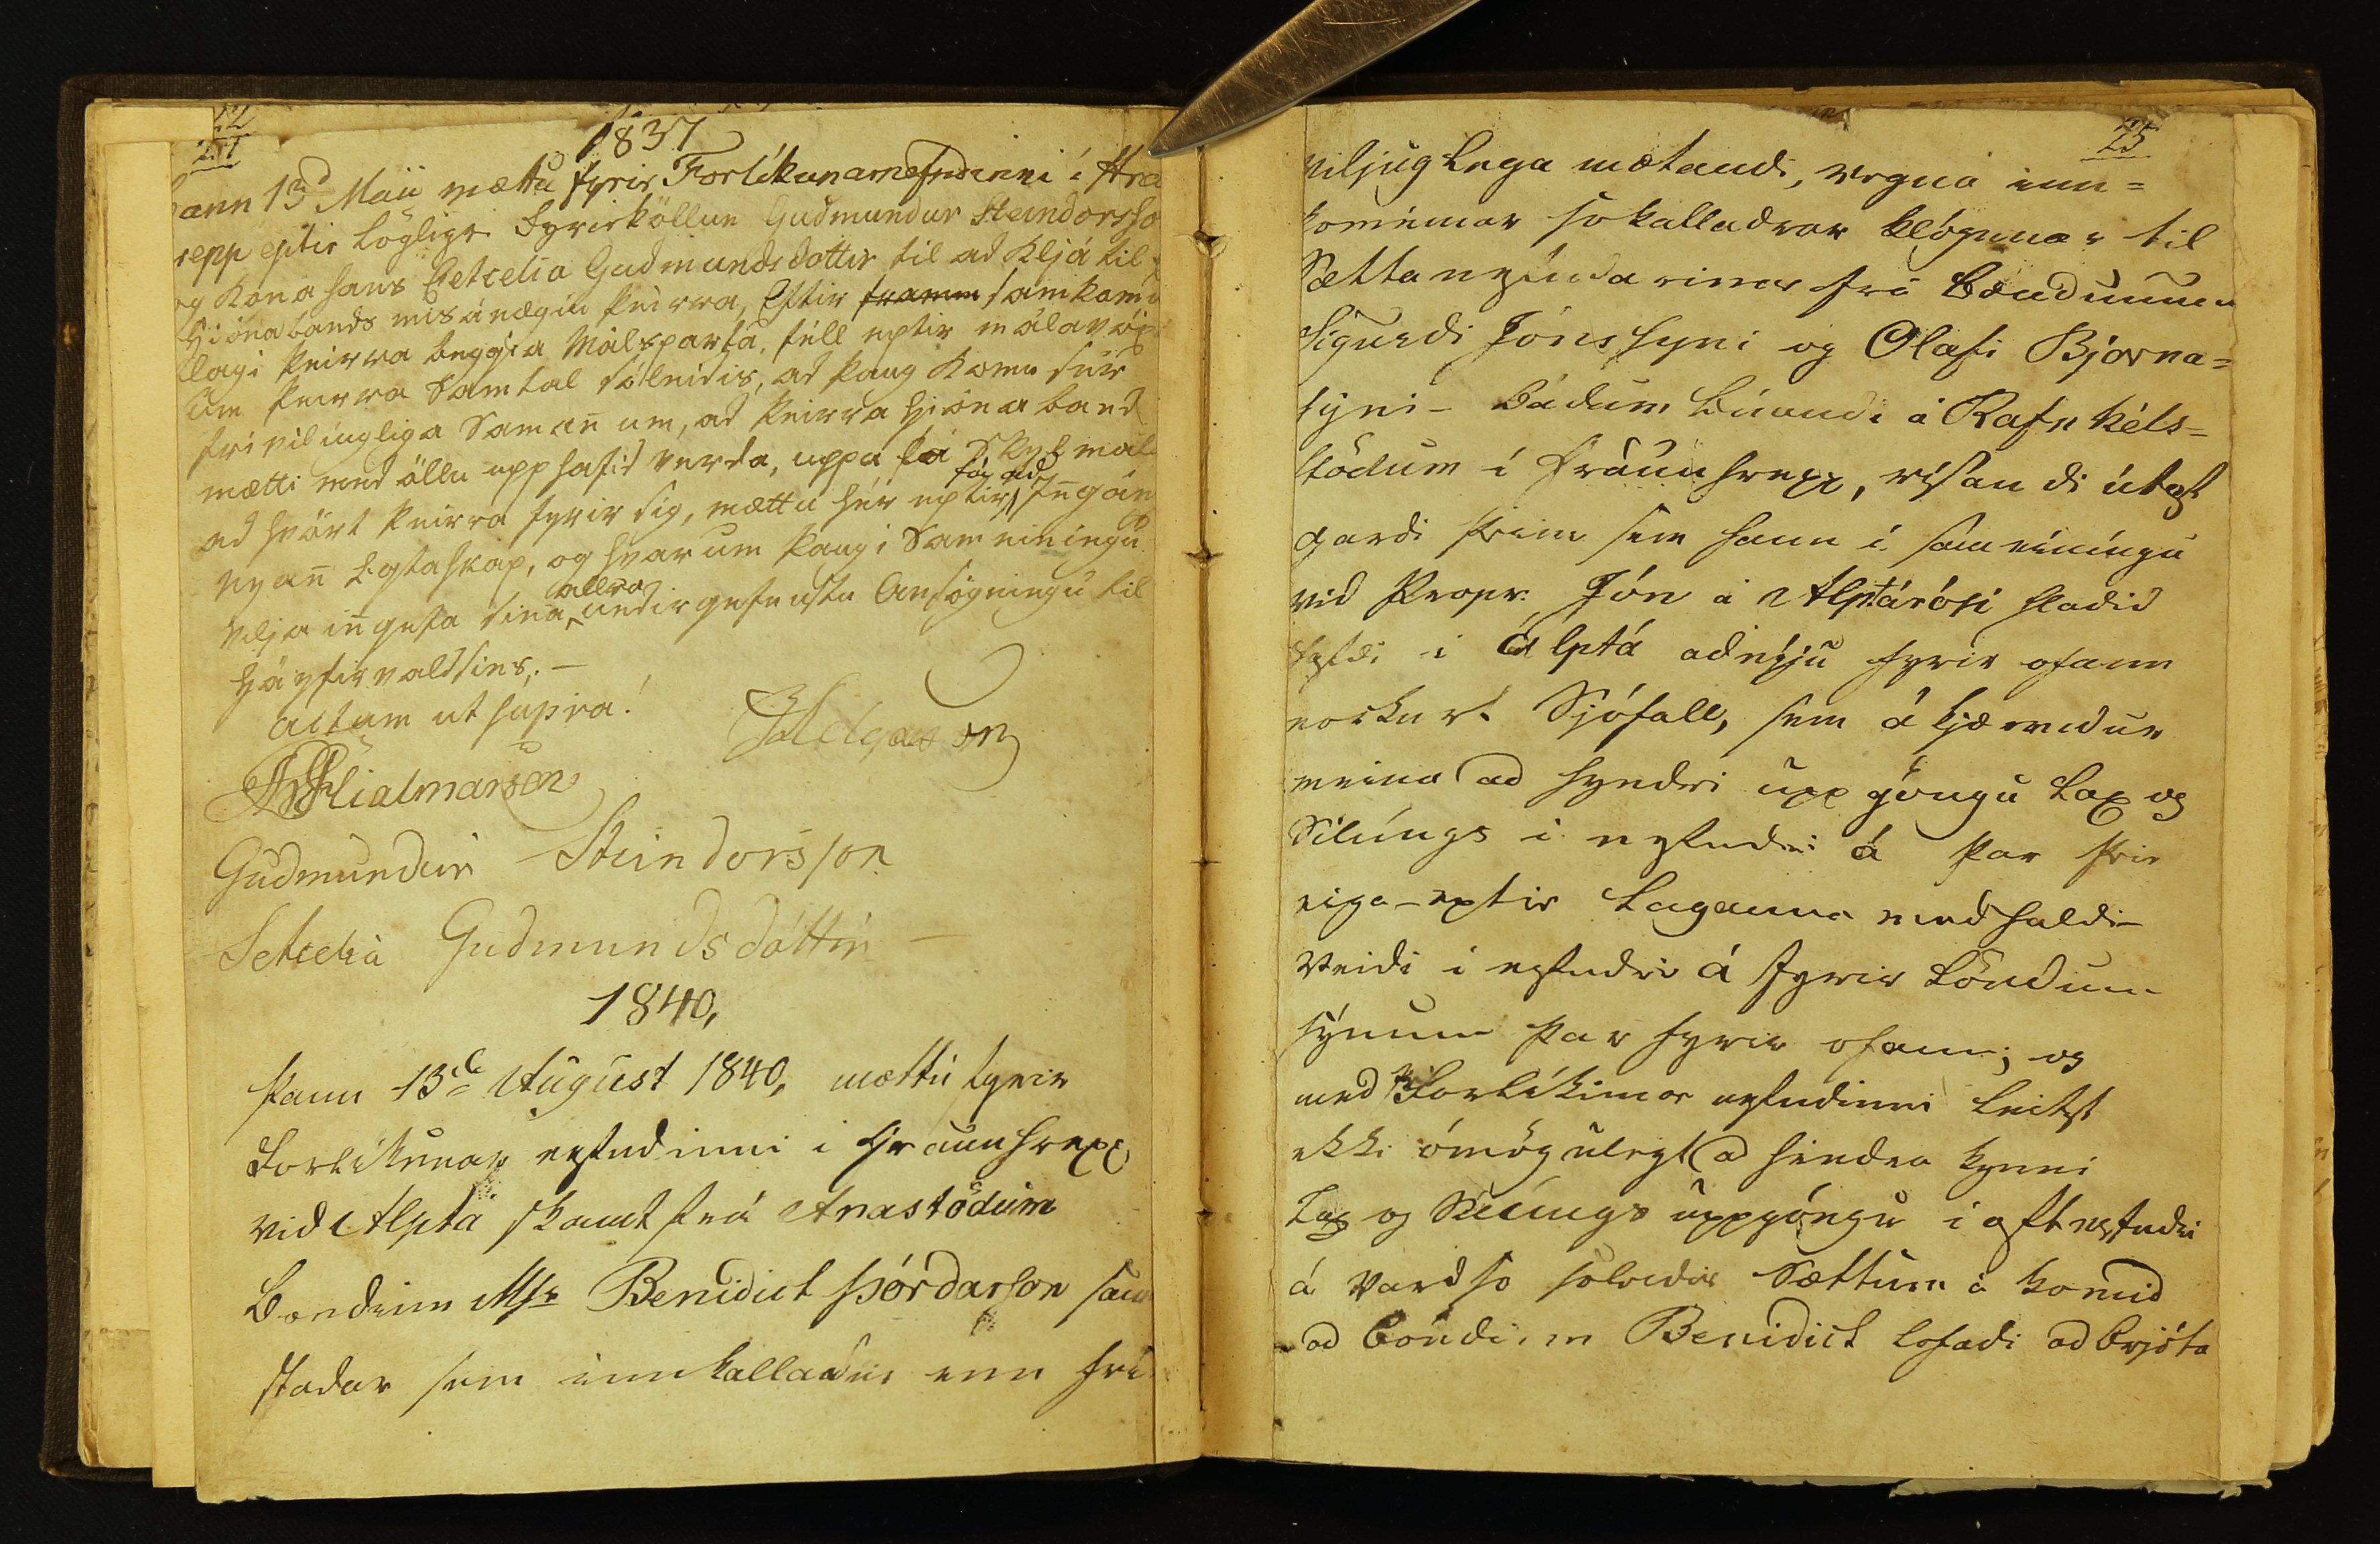 22
24
1837
þann 13d Maii mættu fyrir Forlíkunarnefndinni í Hra
repp eptir löglige fyrirköllun Guðmundur Steindorsso
og kona hans Setcelia Gudmundsdottir til ad kljá til
Hjónabands misánægiu þeirra, Eftir framm samkomu
lagi þeirra beggia Málsparta, féll eptir málavöx
um þeirra Samtal sóleidis, ad þaug komu sér
frívilíugliga Samañ um, ad þeirra hjónaband
mætti med öllu upphafid verda, uppá þá Skylmál
ad hvört þeirra fyrir sig, mættu hér eptir fá ad Iñgán
nyañ Egtaskap, og hvarum þaug i Sameiníngu
vilja iñgefa sína allra undirgefnustu Ansögningu til
Háyfirvaldsins. —
actum ut supra!
Helgason
Hialmarson
Gudmundur Steindorsson
Setcelia Gudmundsdóttir —
1840,
þann 13da August 1840, mættu fyrir
Forlíkunar nefndinni i Hraunhrepp
vid Alptá skamt frá Anastödum
Bondinn Msr Benidict Þórdarson sam
stadar sem innkalladur enn frí
25
viljuglega mætandi, vegna inn=
kominnar so kalladrar klögunar til
Sættanefndarinnar frá Bændunum
Sigurdi Jónssyni og Olafi Bjarna=
syni – bádum búandi á Rafnkéls=
stödum i Hraunhrepp, rísandi útaf
gardi þeim sem hann i sameiníngu
vid Propr. Jón á Alptárósi hladid
hefdi i Álptá adnýju fyrir ofann
nockurt Sjófall, sem á kjærendur
meina ad hyndri uppgöngu Lax og
Silúngs i nefndri á þar þeir
eiga – eptir Laganna medhaldi –
Veidi i nefndri á fyrir Löndum
sýnum þar fyrir ofann; og
med Forlíkunar nefndinni leitst
ekki ómögulegt ad hindra kynni
Lax og Silúngs uppgöngu i oftnefndri
á vard so soleidis Sættum á komid
ad Bóndinn Benidict lofadi ad brjóta